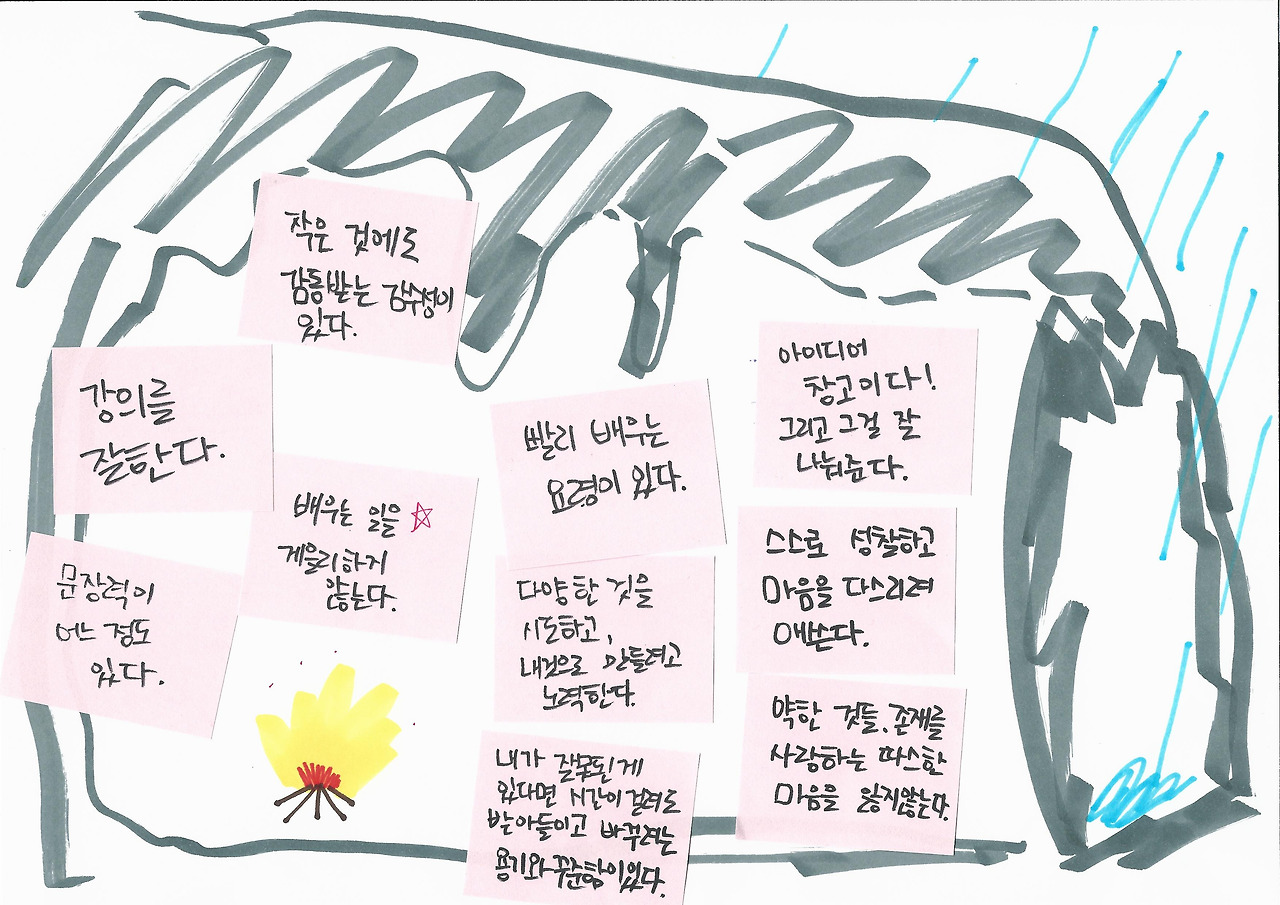 작은 것에도
감동받는 감수성이
있다.
강의를
잘한다.
배우는 일을
게을리하지
않는다.
문장력이
어느 정도
있다.
빨리 배우는
요령이 있다.
다양한 것을
시도하고,
내것으로 만들려고
노력한다.
내가 잘못된게
있다면 시간이 걸려도
받아들이고 바꾸려는
용기와 꾸준함이있다.
아이디어
창고이다!
그리고 그걸 잘
나눠준다.
스스로 성찰하고
마음을 다스리려
애쓴다.
약한 것들, 존재를
사랑하는 따스한
마음을 잃지않는다.